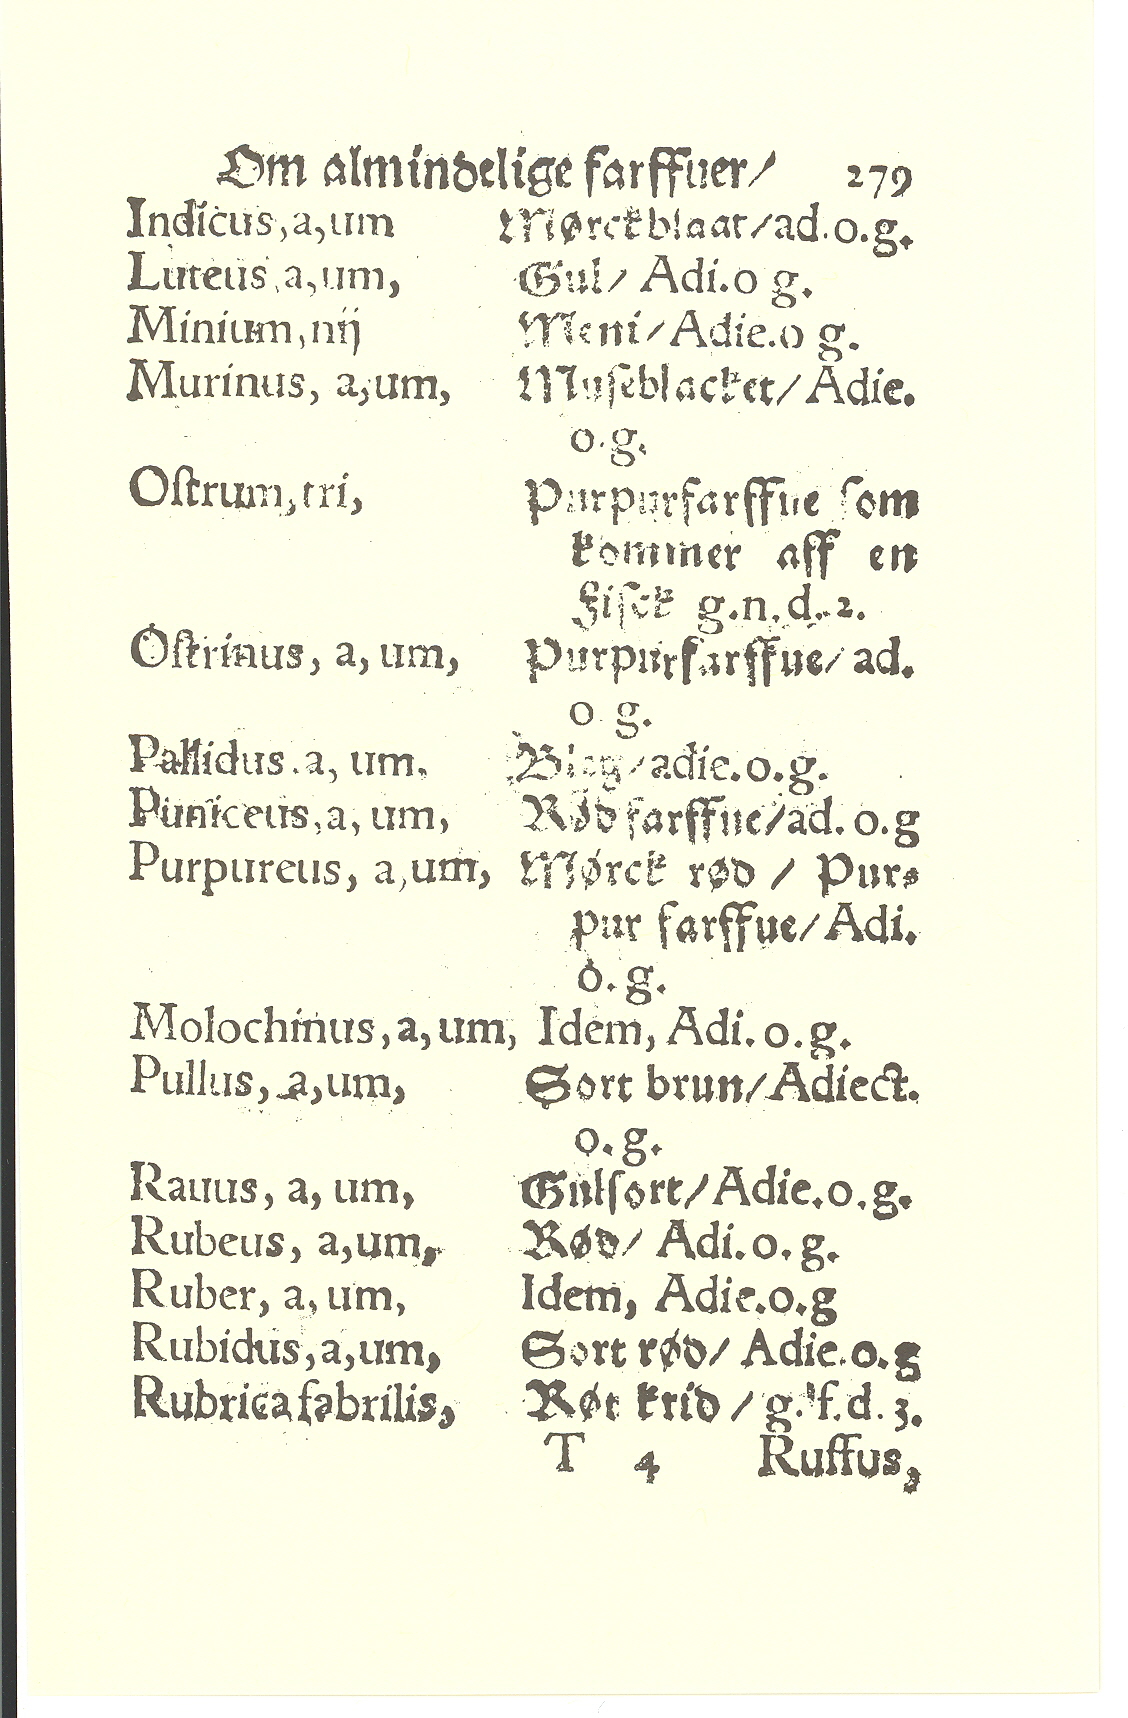 Om almindelige farffuer/ 279
Indicus, a, um Mørckblaat/ad.o.g.
Luteus, a, um, Gul/ Adi.o g.
Minium, nij Meni/Adie.o g.
Murinus, a, um, Museblacket/ Adie.
o.g.
Oſtrum, tri, Purpurfarffue ſom
kommer aff en
Fiſck g.n.d.2.
Oſtrinus, a, um, Purpurfarffue/ ad.
o g.
Pallidus. a, um. Bleg/adie.o.g.
Puniceus, a, um, Rød farffue/ad. o.g
Purpureus, a, um, Mørck rød / Pur⸗
pur farffue/Adi.
o.g.
Molochinus, a, um, Idem, Adi. o.g.
Pullus, a, um, Sort brun/Adiect.
o.g.
Rauus, a, um, Gulſort/Adie.o.g.
Rubeus, a, um, Rød/ Adi.o.g.
Ruber, a, um, Idem, Adie.o.g
Rubidus, a, um, Sort rød/ Adie.o.g
Rubrica fabrilis, Røt krid / g. f.d. 3.
T 4 Ruffus,